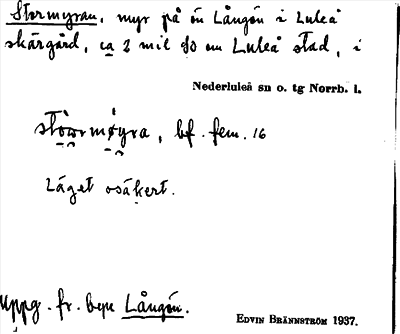 Stormyran, myr på ön Långön i Luleå
skärgård, ca 2 mil so om Luleå stad, i
Nederluleå sn o. tg Norrb. l.
bf. fem. 16
Läget osäkert.
Uppg. fr. byn Långön.
EDVIN BRÄNNSTRÖM 1937.